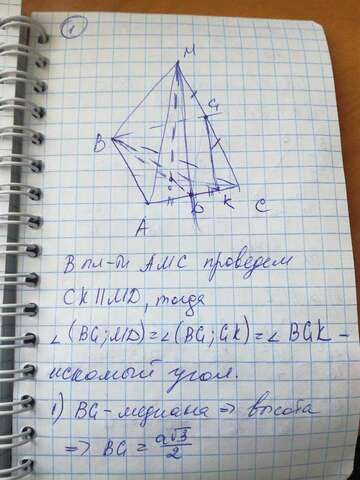 1
M
G
B
O
A
D
K
C
В пл-ти АМС проведем
GK||MD, тогда
∠(BG;MD)=∠(BG;GK)=∠BGK –
искомый угол.
1) BG-медиана => высота
=> BG = a√3/2